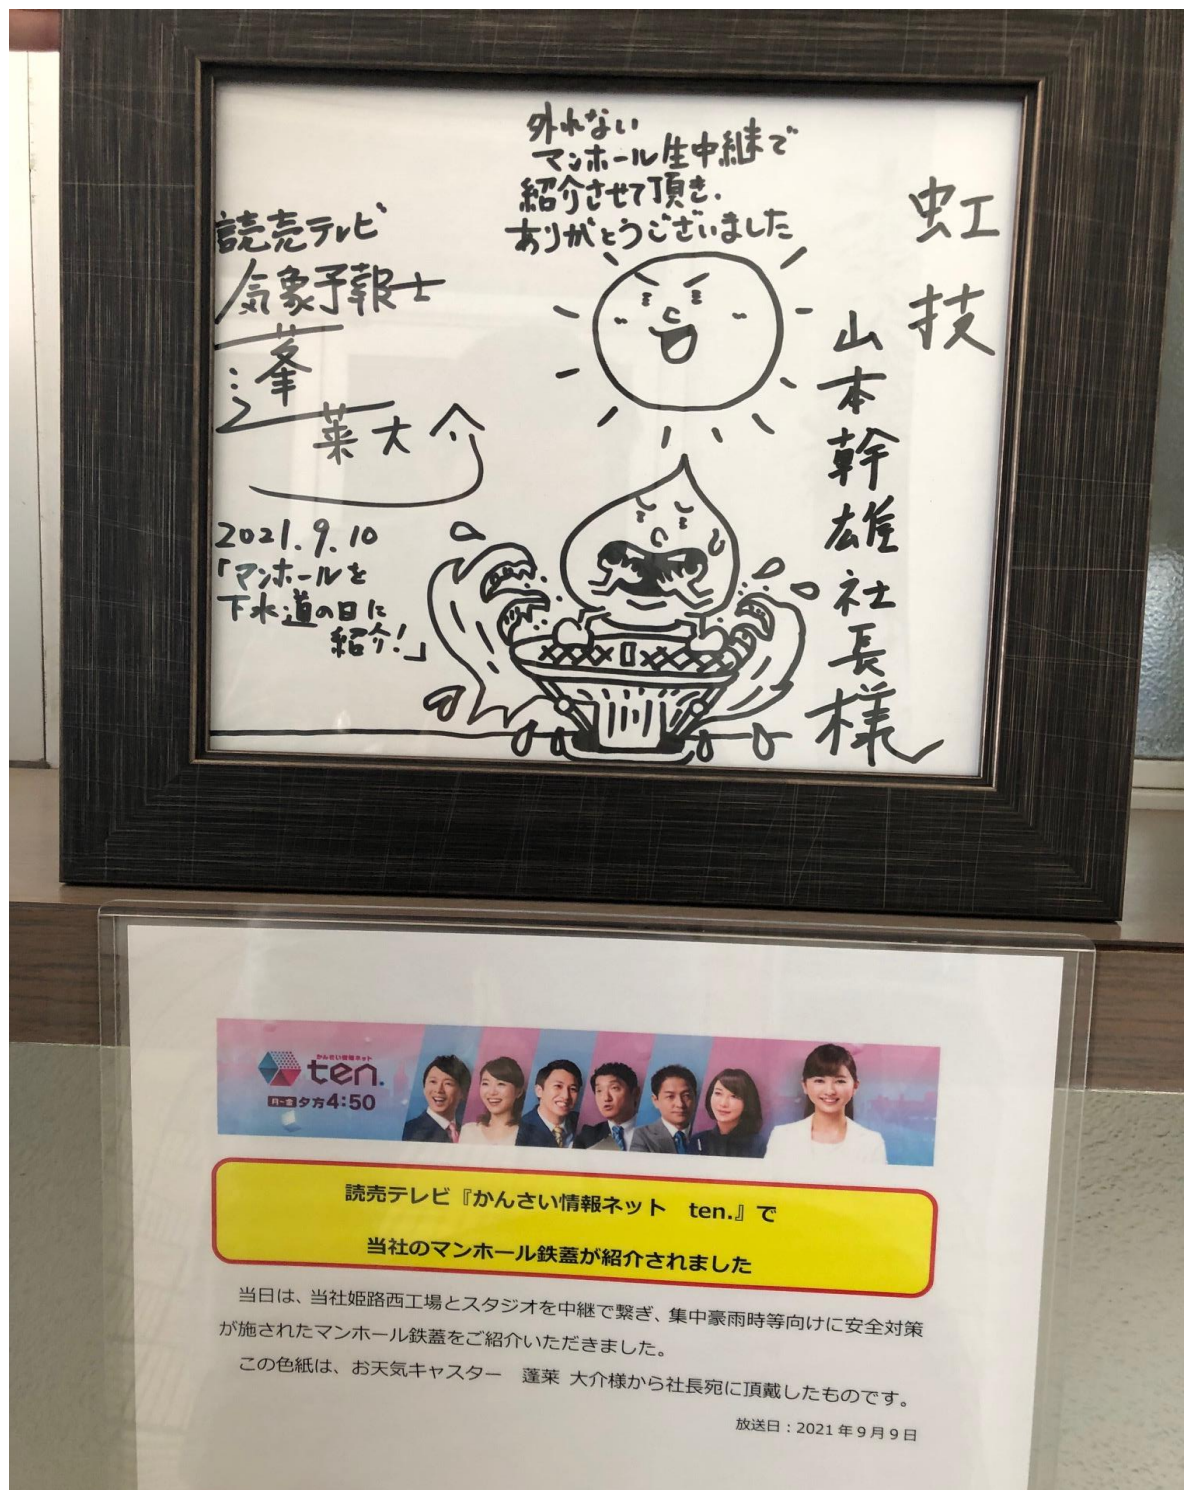 外れない
マンホール生中継で
紹介させて頂き、
ありがとうございました
虹技
山本幹雄社長様
読売テレビ
気象予報士
蓬莱大介
2021.9.10
「マンホールを
下水道の日に
紹介!」
かんさい情報ネット
ten.
月~金 夕方4:50
読売テレビ『かんさい情報ネット ten.』で
当社のマンホール鉄蓋が紹介されました
当日は、当社姫路西工場とスタジオを中継で繋ぎ、集中豪雨時等向けに安全対策
が施されたマンホール鉄蓋をご紹介いただきました。
この色紙は、お天気キャスター 蓬莱 大介様から社長宛に頂戴したものです。
放送日：2021年9月9日